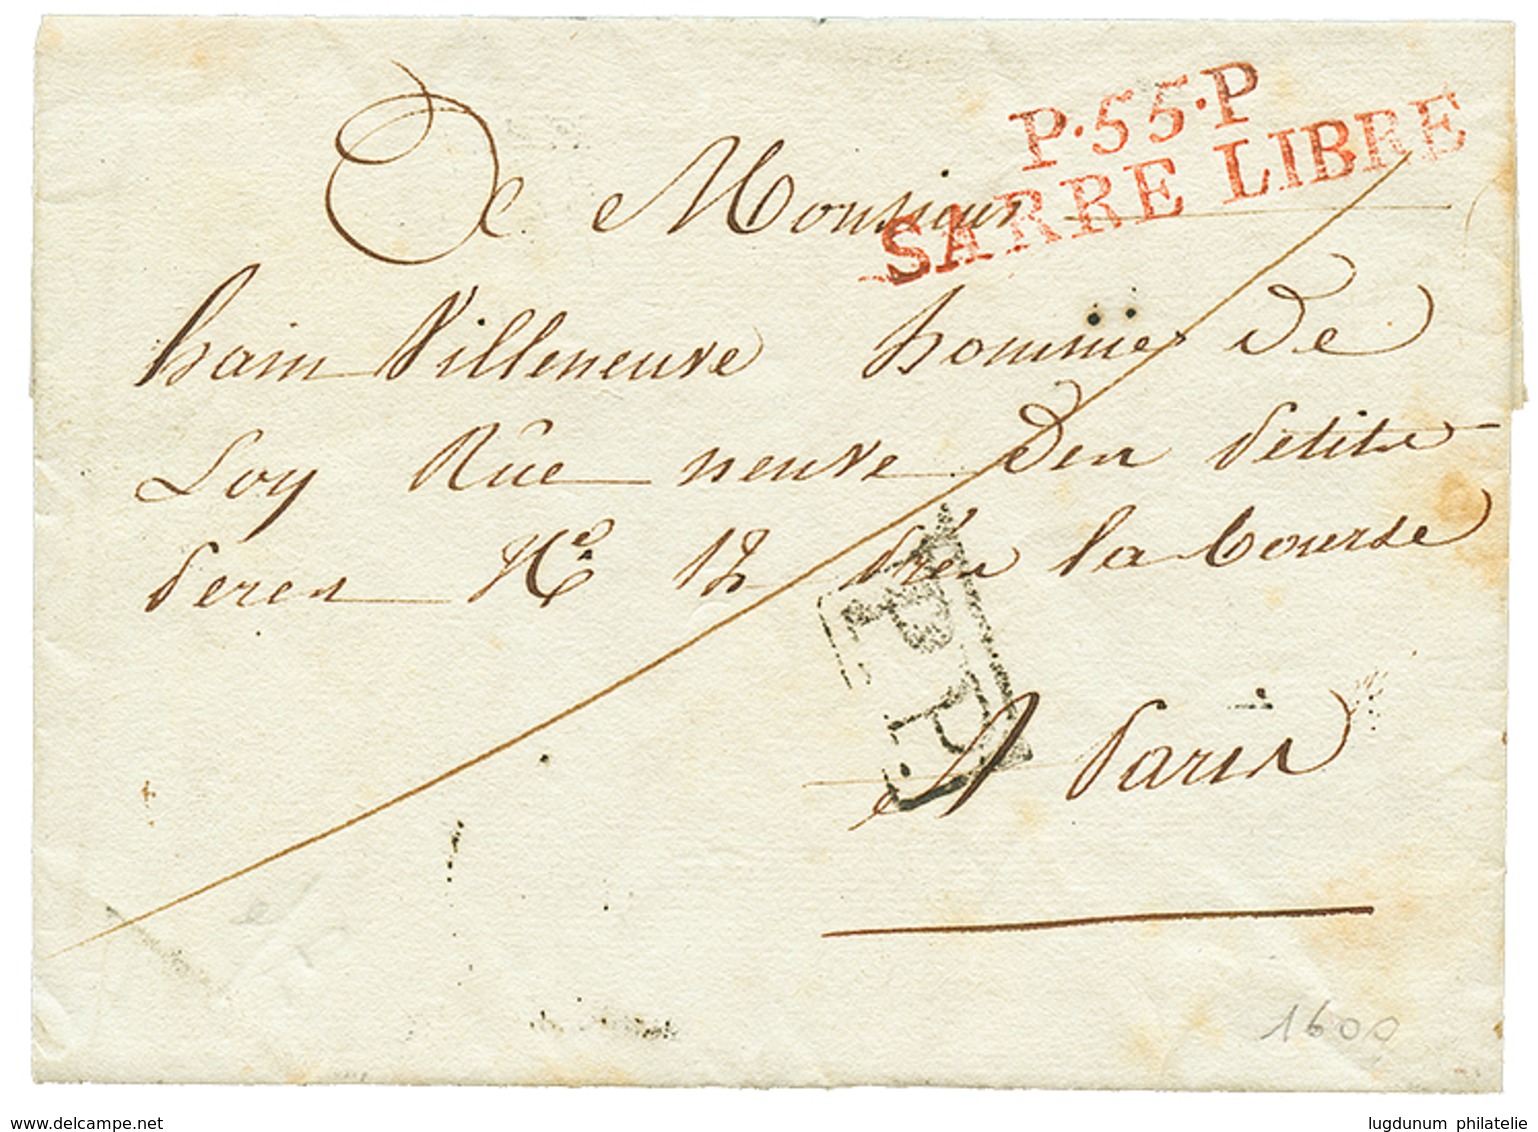 P.55.P
SARRE LIBRE
De Monsieur
hain Villeneuve homme de
Loy Rûe neuve den petits
peres N.º 12 prés la bourse
P.P.
A Paris
1600
www.delcampe.net
lugdunum philatelie